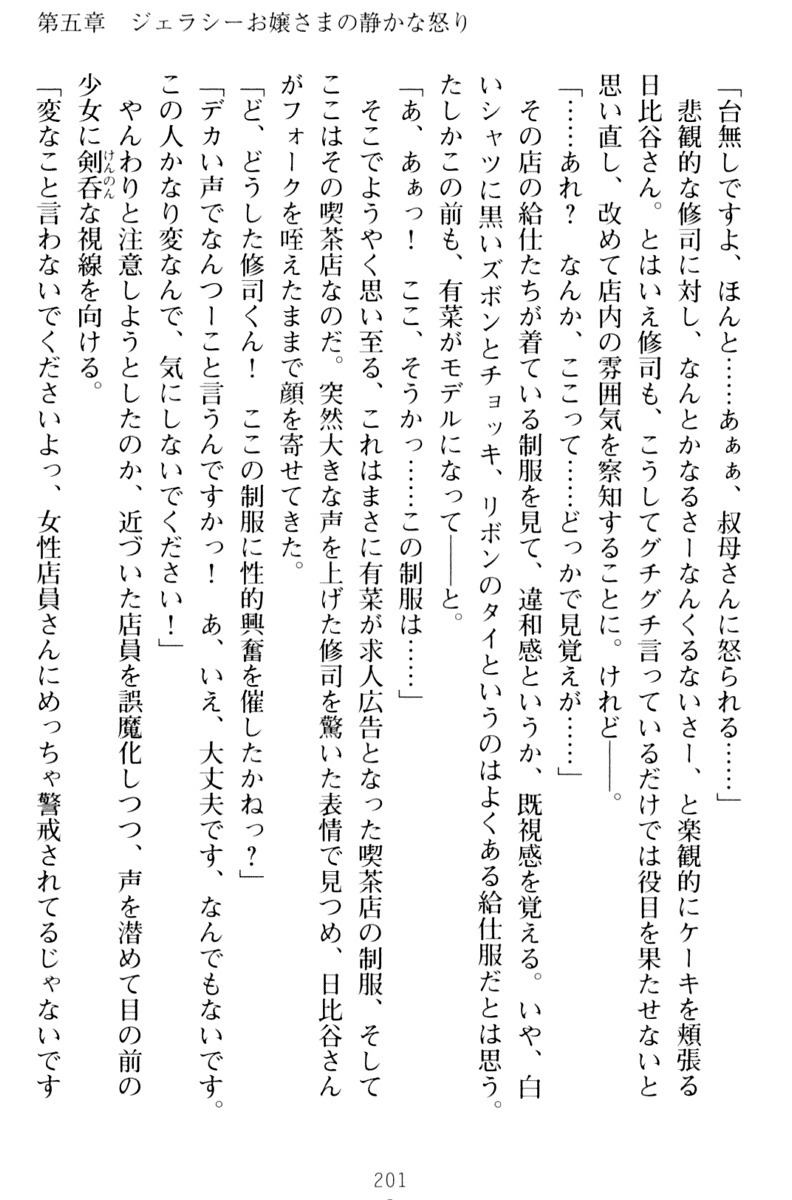 第五章　ジェラシーお嬢さまの静かな怒り
「台無しですよ、ほんと……あぁぁ、叔母さんに怒られる……」
　悲観的な修司に対し、なんとかなるさーなんくるないさー、と楽観的にケーキを頬張る
日比谷さん。とはいえ修司も、こうしてグチグチ言っているだけでは役目を果たせないと
思い直し、改めて店内の雰囲気を察知することに。けれど――。
「……あれ？　なんか、ここって……どっかで見覚えが……」
　その店の給仕たちが着ている制服を見て、違和感というか、既視感を覚える。いや、白
いシャツに黒いズボンとチョッキ、リボンのタイというのはよくある給仕服だとは思う。
たしかこの前も、有菜がモデルになって――と。
「あ、あぁっ！　ここ、そうかっ……この制服は……」
　そこでようやく思い至る、これはまさに有菜が求人広告となった喫茶店の制服、そして
ここはその喫茶店なのだ。突然大きな声を上げた修司を驚いた表情で見つめ、日比谷さん
がフォークを咥えたままで顔を寄せてきた。
「ど、どうした修司くん！　ここの制服に性的興奮を催したかねっ？」
「デカい声でなんつーこと言うんですかっ！　あ、いえ、大丈夫です、なんでもないです。
この人かなり変なんで、気にしないでください！」
　やんわりと注意しようとしたのか、近づいた店員を誤魔化しつつ、声を潜めて目の前の
少女に剣呑な視線を向ける。
けんのん
「変なこと言わないでくださいよっ、女性店員さんにめっちゃ警戒されてるじゃないです
201